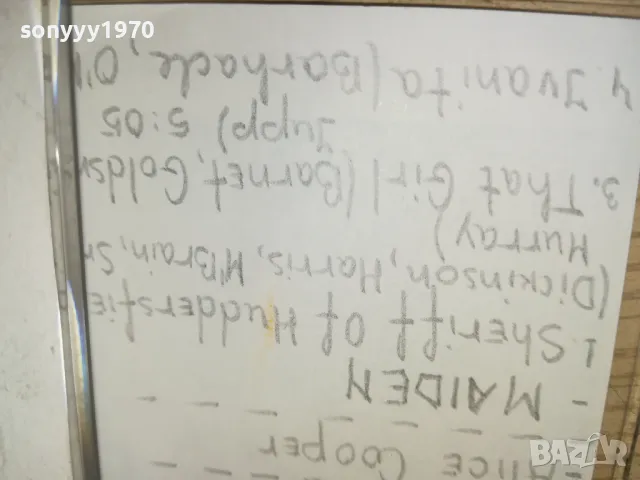 sonyyy1970
- Alice Cooper - -
- - - - - - -
- MAIDEN - - - -
1. Sheriff Of Huddersfie
(Dickinson, Harris, M'Brain, Sm
Murray)
3. That Girl (Barnet, Golds
Jupp) 5:05
4. Juanita (Barhade, O'
BAZAR